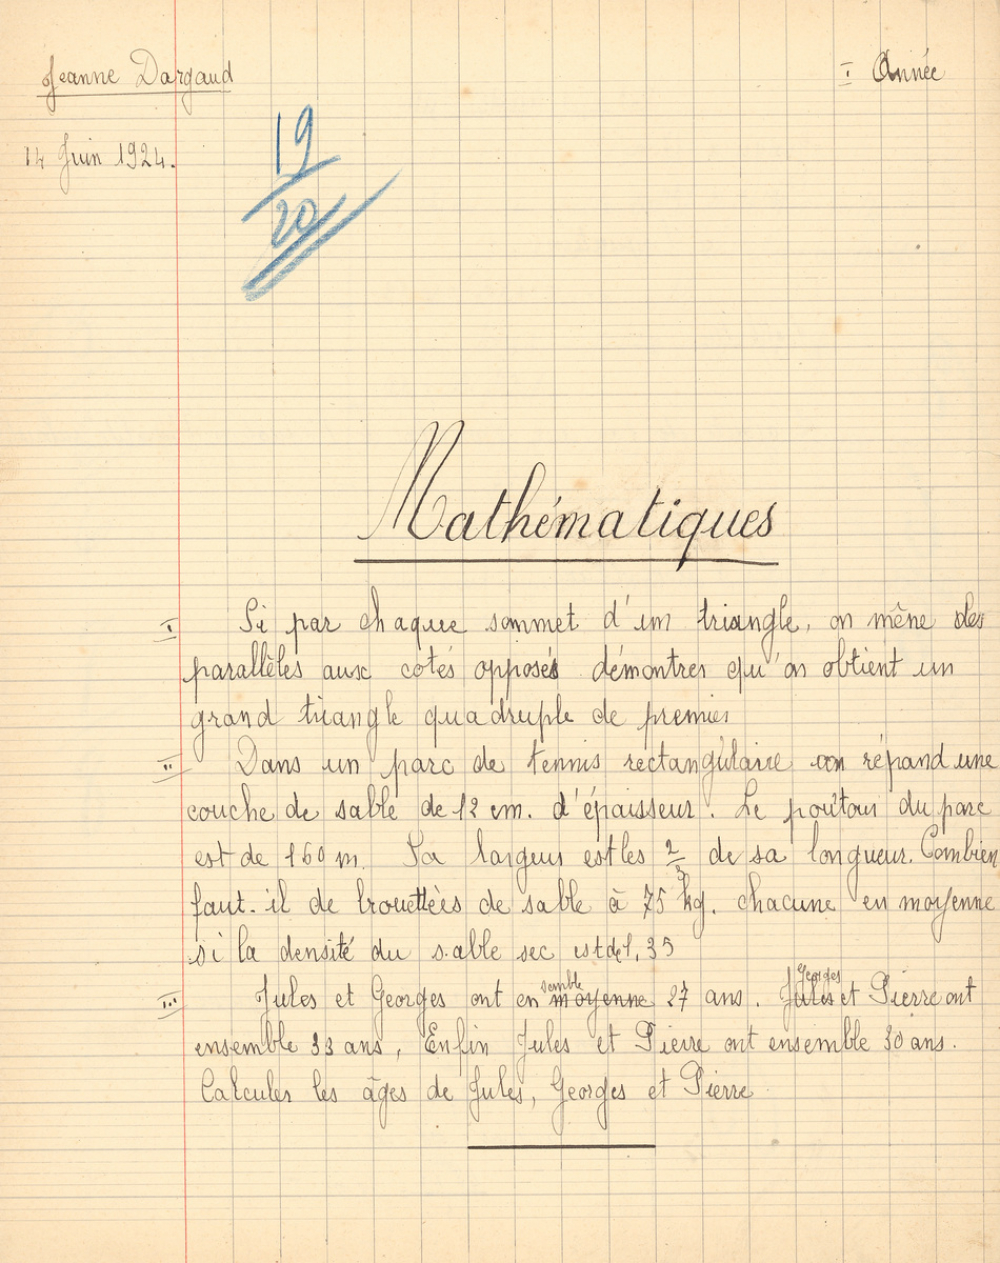 Jeanne Dargaud
I Année
14 Juin 1924.
19
20
Mathématiques
I Si par chaque sommet d'un triangle, on mène des
parallèles aux cotés opposés démontrer qu'on obtient un
grand triangle quadruple de premier
II Dans un parc de tennis rectangulaire on répand une
couche de sable de 12 cm. d'épaisseur. Le poûtour du parc
est de 160 m. Sa largeur est les 2/3 de sa longueur. Combien
faut-il de brouettées de sable à 75 kg. chacune en moyenne
si la densité du sable sec est de 1,35
III Jules et Georges ont en moyenne semble 27 ans. Jules Georges et Pierre ont
ensemble 33 ans, Enfin Jules et Pierre ont ensemble 30 ans.
Calculer les âges de Jules, Georges et Pierre